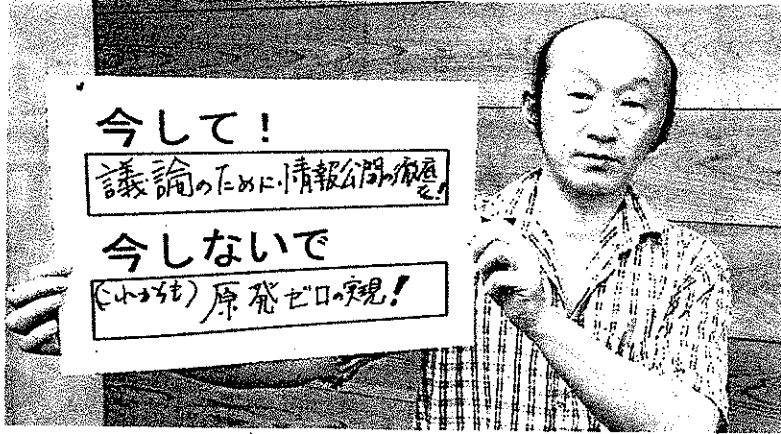 今して!
議論のために情報公開の徹底を!
今しないで
(これからも) 原発ゼロの実現!